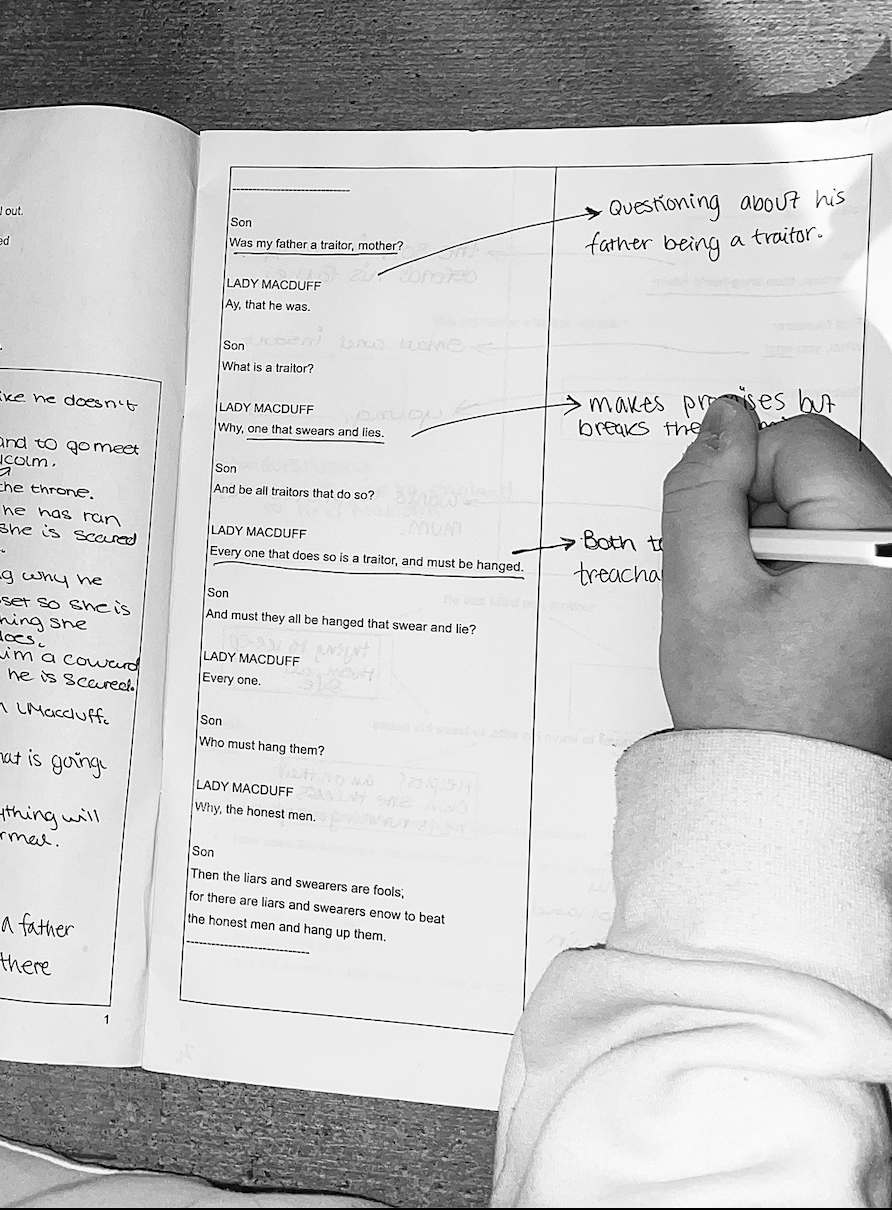 l out.
ed
like he doesn't
and to go meet
lcolm.
the throne.
he has ran
she is scared
g why he
set so she is
hing she
does.
im a coward
he is scared.
Macduff.
hat is going
ything will
rmal.
a father
there
1
Son
Was my father a traitor, mother?
LADY MACDUFF
Ay, that he was.
Son
What is a traitor?
LADY MACDUFF
Why, one that swears and lies.
Son
And be all traitors that do so?
LADY MACDUFF
Every one that does so is a traitor, and must be hanged.
Son
And must they all be hanged that swear and lie?
LADY MACDUFF
Every one.
Son
Who must hang them?
LADY MACDUFF
Why, the honest men.
Son
Then the liars and swearers are fools,
for there are liars and swearers enow to beat
the honest men and hang up them.
Questioning about his
father being a traitor.
makes promises but
breaks
Both
treacha